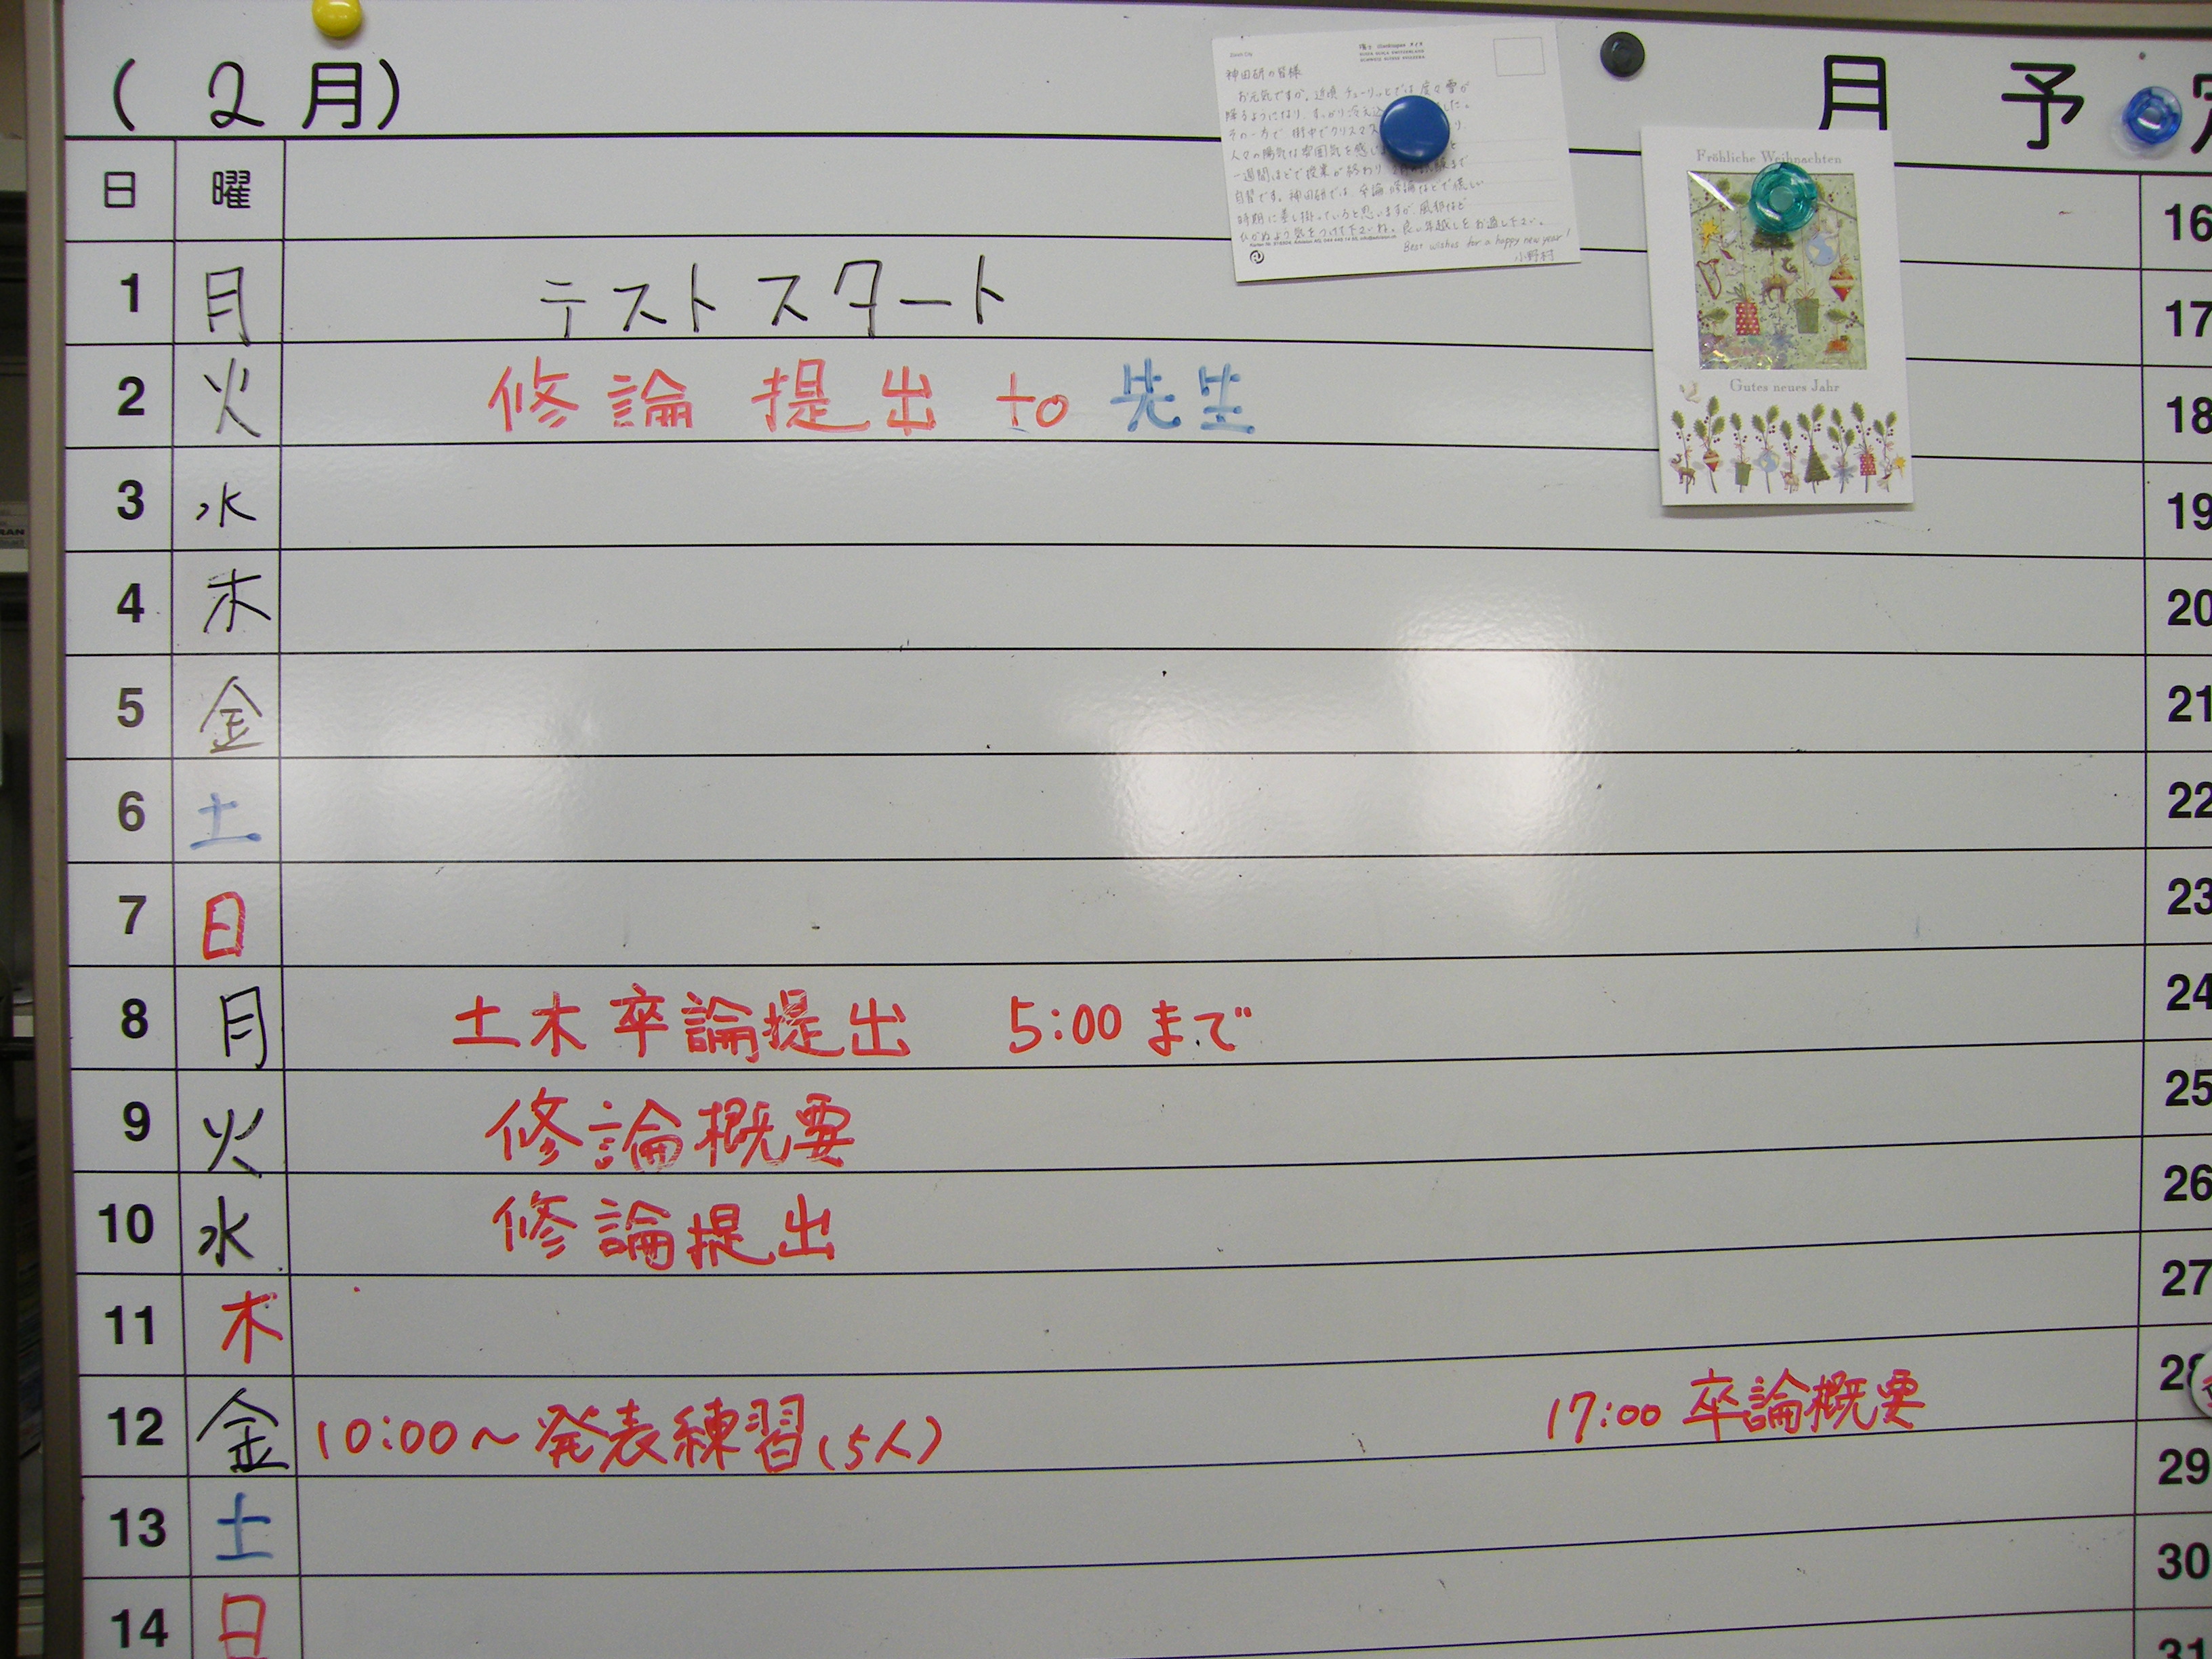 (2月)
月予定
日 曜
1 月 テストスタート
2 火 修論提出 to 先生
3 水
4 木
5 金
6 土
7 日
8 月 土木卒論提出 5:00 まで
9 火 修論概要
10 水 修論提出
11 木
12 金 10:00〜発表練習(5人) 17:00 卒論概要
13 土
14 日
16
17
18
19
20
21
22
23
24
25
26
27
28
29
30
31
神田研の皆様
お元気ですか。近頃チューリッヒでは度々雪が
降るようになり、すっかり冷え込
その一方で街中でクリスマス
人々の陽気な雰囲気を感じ
一週間ほどで授業が終わり
自習です。神田研では卒論、修論などで慌しい
時期に差し掛っていると思いますが、風邪など
ひかぬよう気をつけて下さいね。良い年越しをお過し下さい。
Best wishes for a happy new year!
小野村
Fröhliche Weihnachten
Gutes neues Jahr